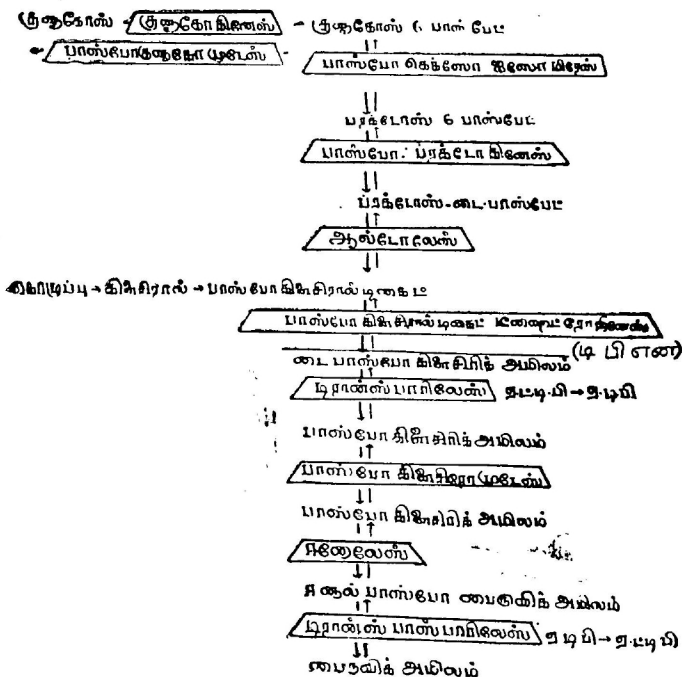 குளுகோஸ் - குளுகோகினேஸ் - குளுகோஸ் 6 பாஸ்பேட்
பாஸ்போகுளுகோமுடேஸ் - பாஸ்போ கெக்ஸோ ஐஸோமிரேஸ்
ப்ரக்டோஸ் 6 பாஸ்பேட்
பாஸ்போ ப்ரக்டோ கினேஸ்
ப்ரக்டோஸ்-டை-பாஸ்பேட்
ஆல்டோலேஸ்
கொழுப்பு → கிளிசிரால் → பாஸ்போ கிளிசிரால்டிகைட்
பாஸ்போ கிளிசிரால்டிகைட் டீஹைட்ரோஜினேஸ்
(டி பி என்)
டை பாஸ்போ கிளிசிரிக் அமிலம்
டிரான்ஸ்பாரிலேஸ் ஏ.டி.பி → ஏ.டி.பி
பாஸ்போ கிளிசிரிக் அமிலம்
பாஸ்போ கிளிசிரோ முடேஸ்
பாஸ்போ கிளிசிரிக் அமிலம்
ஈனோலேஸ்
ஈனால் பாஸ்போ பைருவிக் அமிலம்
டிரான்ஸ் பாஸ்பாரிலேஸ் ஏ டி பி → ஏ.ட்டி பி
பைருவிக் அமிலம்